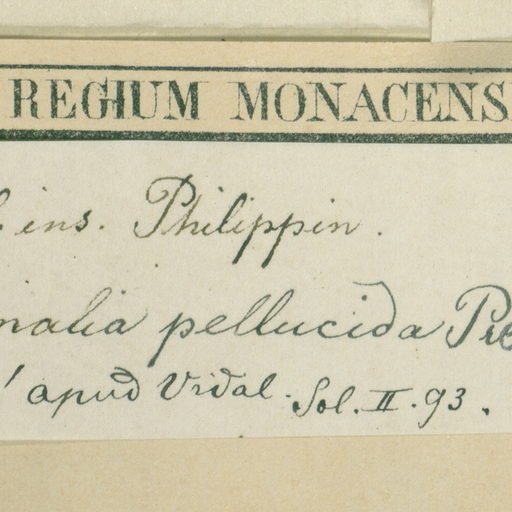 REGIUM MONACENS
l. ins. Philippin.
nalia pellucida Pres
' apud Vidal. Sol. II. 93.